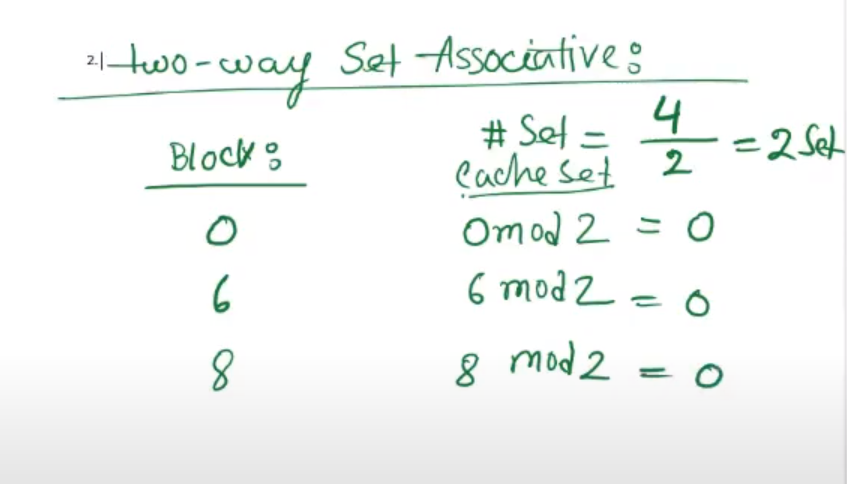 2.| two-way Set Associative:
# Set = 4/2 = 2 Set
Block: Cache set
0 0 mod 2 = 0
6 6 mod 2 = 0
8 8 mod 2 = 0